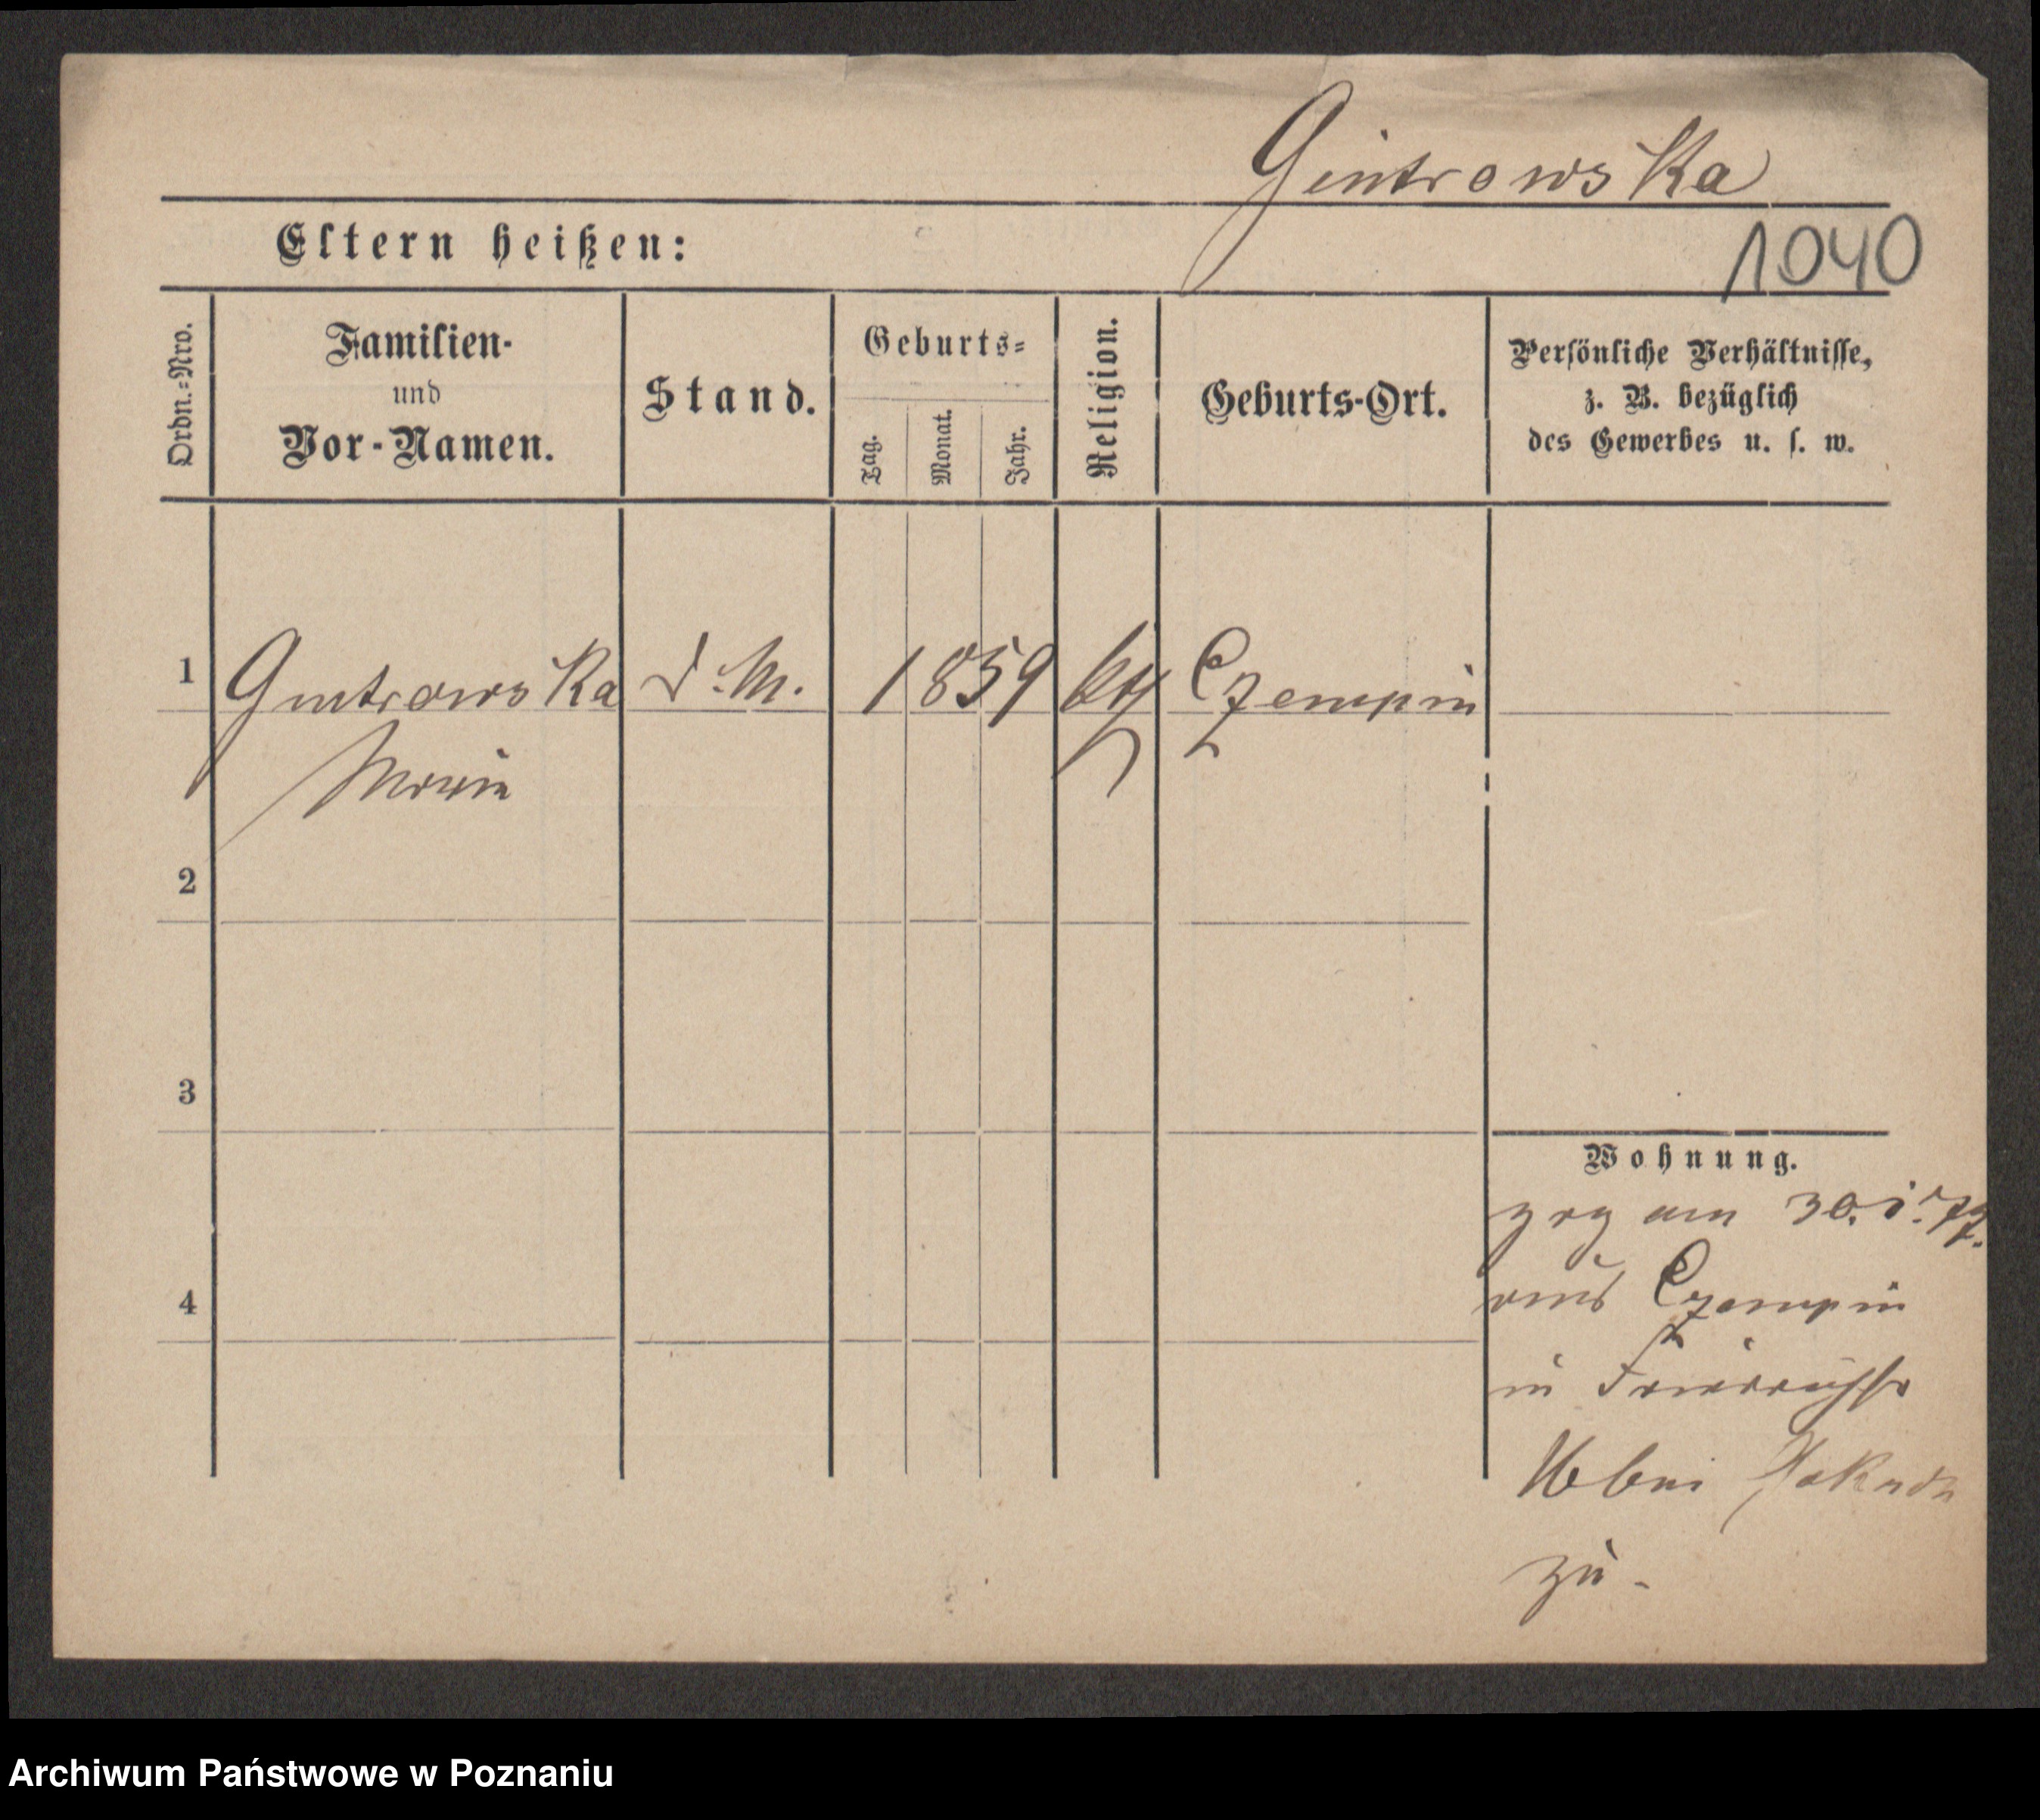 Gintrowska
1040
Eltern heißen:
Ordn.=Nro.
Familien-
und
Vor-Namen.
Stand.
Geburts=
Tag.
Monat.
Jahr.
Religion.
Geburts-Ort.
Persönliche Verhältnisse,
z. B. bezüglich
des Gewerbes u. s. w.
1 Gintrowska d. M. 1859 kth Czempin
Maria
2
3
4
Wohnung.
zog am 30. 77.
aus Czempin
in
bei
zu.
Archiwum Państwowe w Poznaniu